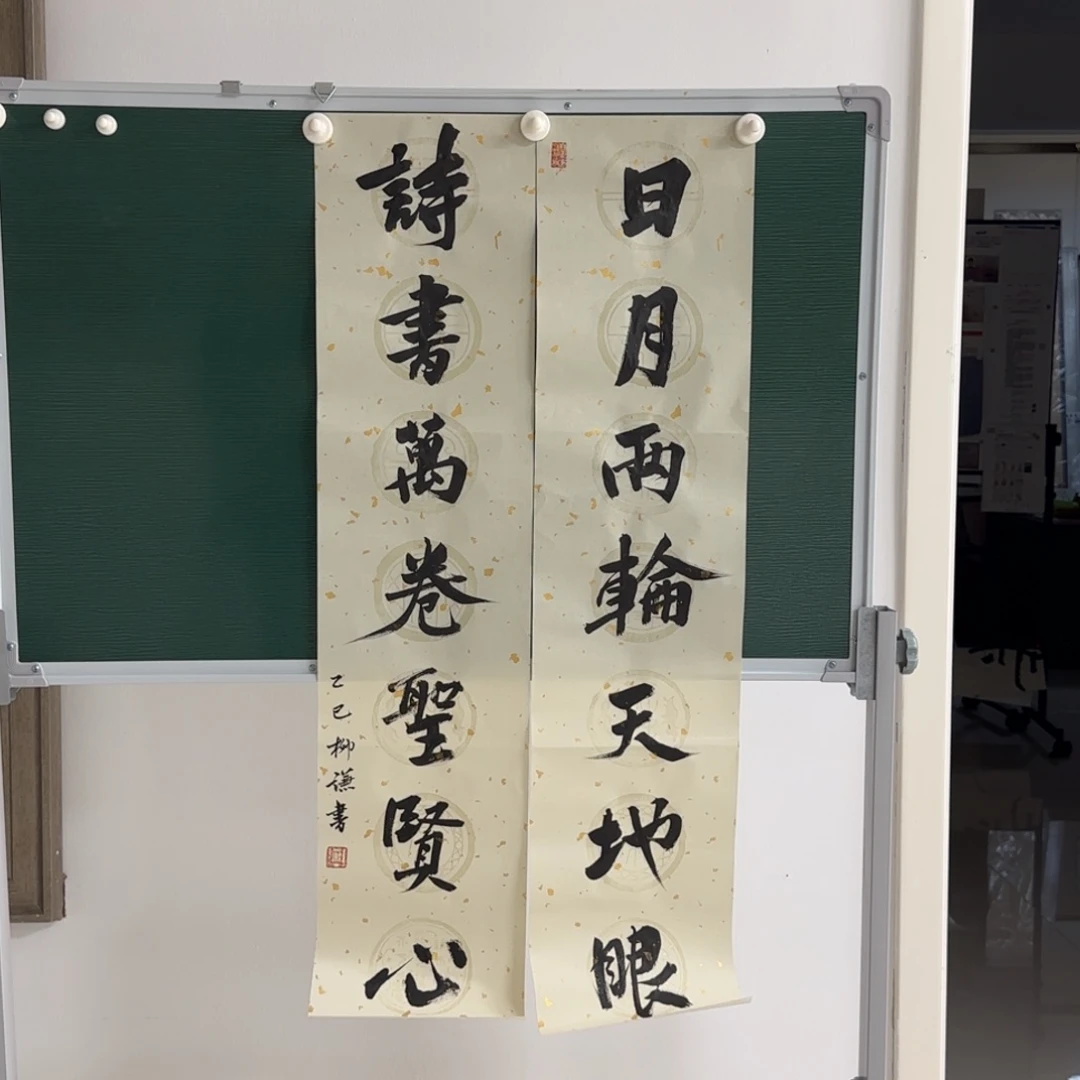 日月兩輪天地眼
詩書萬卷聖賢心
乙巳柳謙書